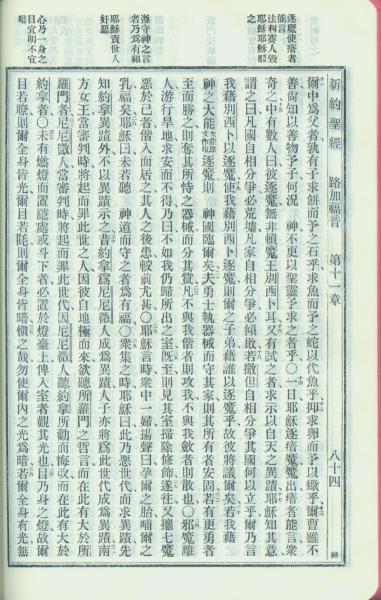 新約聖經 路加福音 第十一章 八十四 神
逐魔使瘖者
能言
法利賽人毀
耶穌耶穌駁
之
爾中為父者孰有子求餅而予之石乎求魚而予之蛇以代魚乎抑求卵而予以蠍乎爾曹雖不
善尚知以善物予子何況 神不更以聖靈予求之者乎○一日耶穌逐瘖魔魔出瘖者能言衆
奇之中有數人曰彼逐魔無非賴魔王別西卜耳又有試之者求示以自天之異蹟耶穌知其意
謂之曰凡國自相分爭必荒墟凡家自相分爭必傾敗若撒但自相分爭其國何以立乎爾乃言
我藉別西卜以逐魔使我藉別西卜逐魔則爾之子弟藉誰以逐魔乎故彼將議爾矣若我藉
神之大能大能原文作指逐魔則 神國臨爾矣夫勇士執器械而守其家則其所有者安固若有更勇者
至而勝之則奪其所恃之器械而分其貲凡不與我偕者則攻我不與我斂者則散也○邪魔離
遵守神之言
者乃為有福
人游行旱地求安而不得乃曰不如我仍歸所出之室既至則見其室掃除修飾遂往又攜七魔
惡於己者偕入而居之其人之後患較前尤甚○耶穌言時衆中一婦揚聲曰孕爾之胎哺爾之
耶穌責世人
奸惡
乳福矣耶穌曰未若聽 神道而守之者為有福○衆集之時耶穌曰此乃惡世代而求異蹟先
知約拿異蹟外不以異蹟示之昔約拿為尼尼微人成為異蹟人子亦將為此世代成為異蹟南
方女王當審判時將起而罪此世之人因彼自地極而來欲聽所羅門之哲言而在此有大於所
羅門者尼尼微人當審判時將起而罪此世代因尼尼微人聽約拿所勸而悔改而在此有大於
心乃一身之
目宜明不宜
暗
約拿者○未有燃燈而置隱處或斗下者必置於燈臺上俾入室者觀其光也目乃身之燈故爾
目若瞭則爾全身皆光爾目若眊則爾全身皆暗慎之哉勿使爾內之光為暗若爾全身有光無